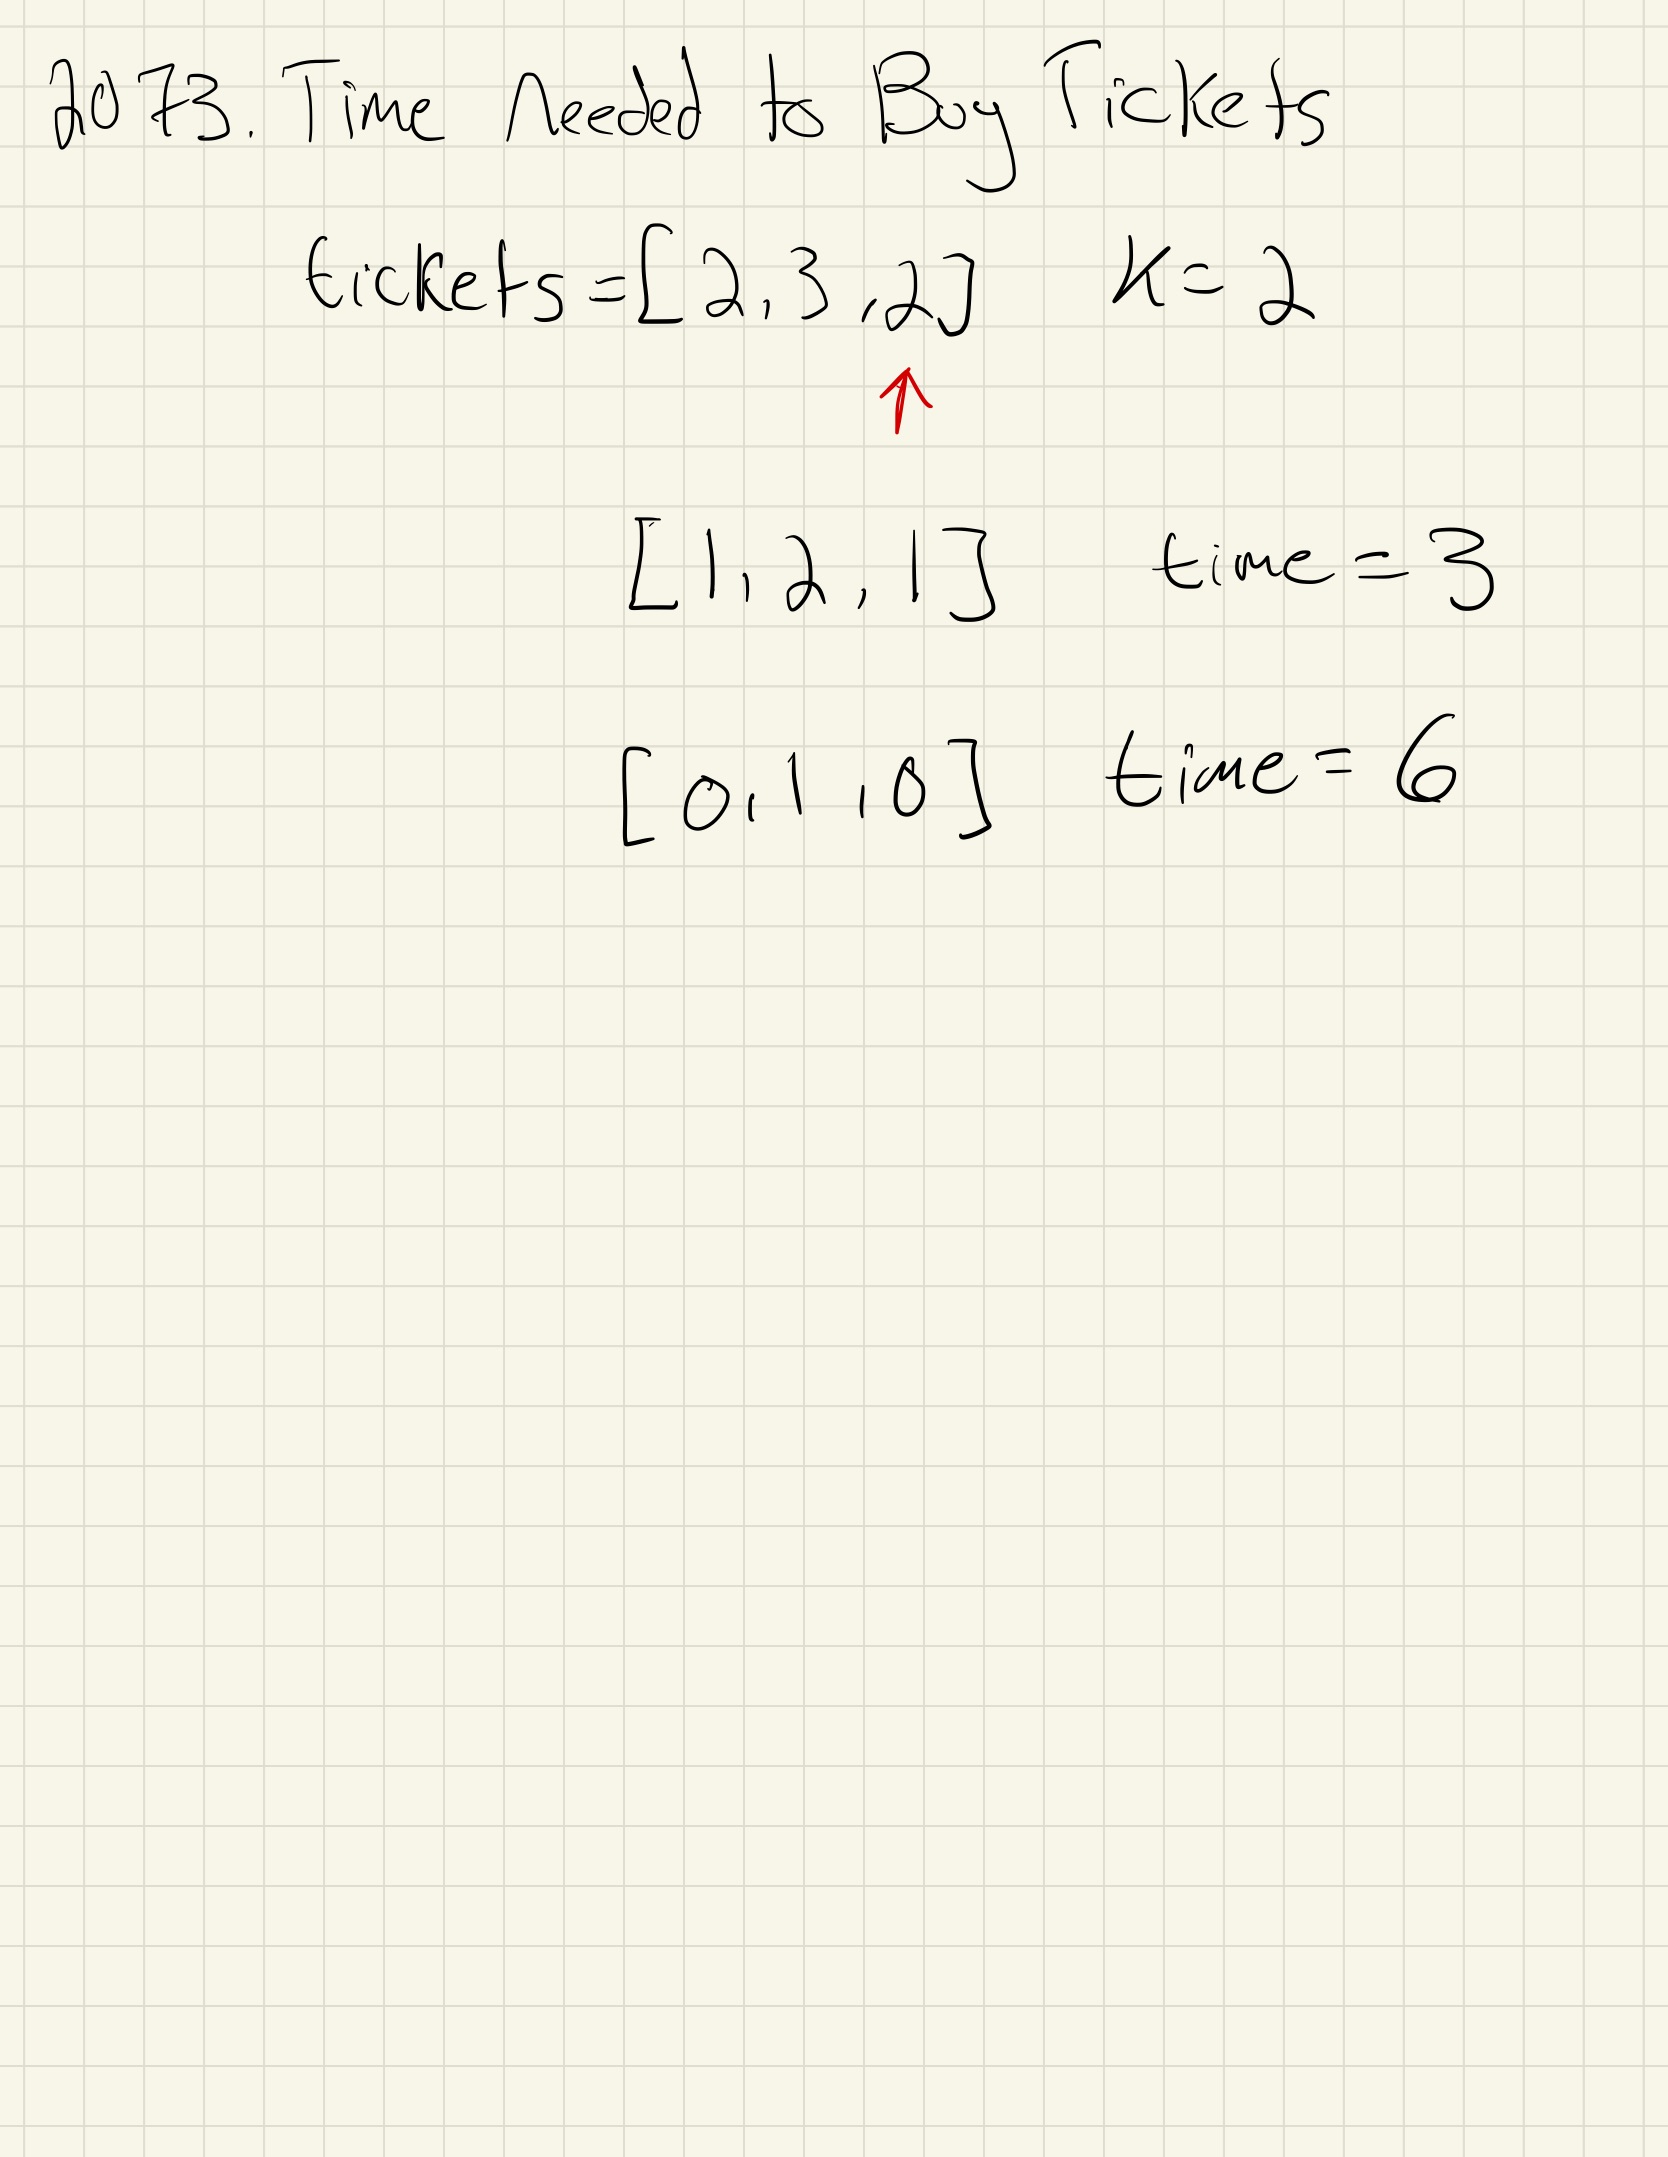 2073. Time Needed to Buy Tickets
tickets=[2,3,2] K=2
[1,2,1] time=3
[0,1,0] time=6